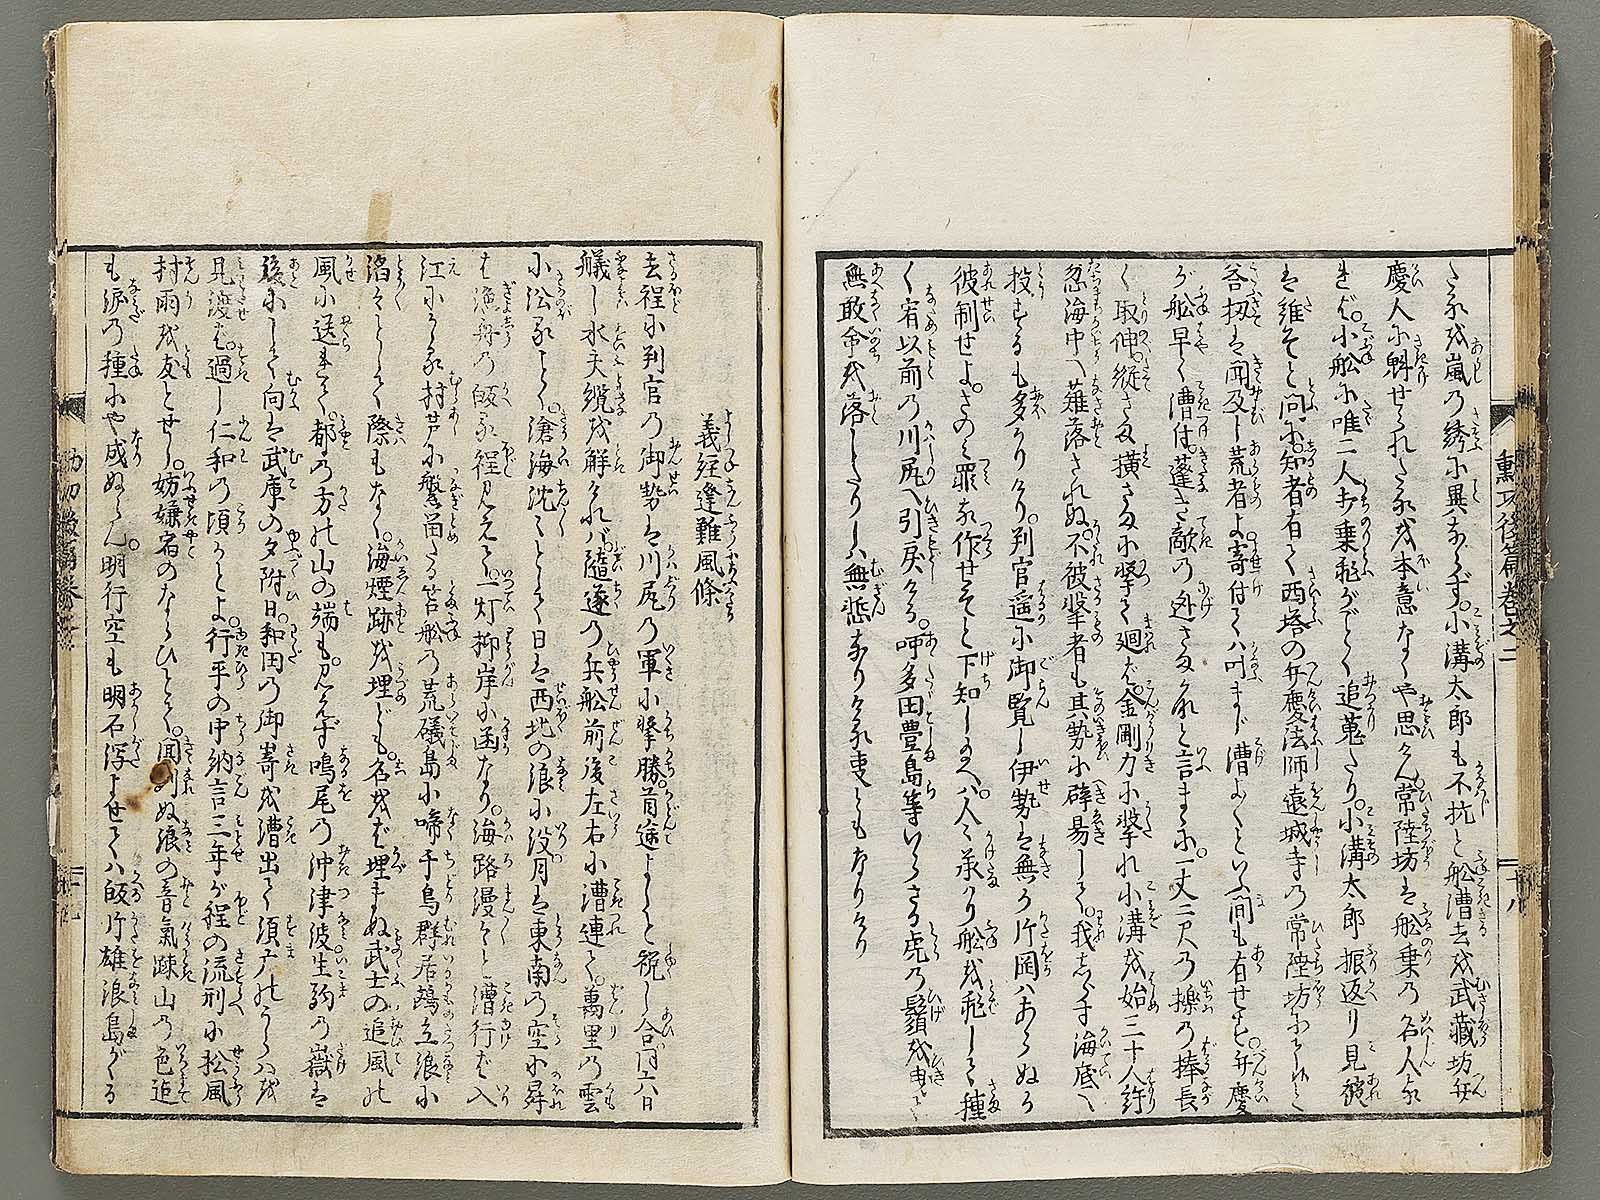 さる我嵐の誘に異ならず。小溝太郎も不抗と舩漕去を武藏坊弁
慶人に魁せられたる我本意なくや思けん。常陸坊は舩乗の名人なる
きば。小舩に唯二人打乗颿がごとく追蒐たり。小溝太郎振返り見彼
は維そと問に。知者有て西塔の弁慶法師遠城寺の常陸坊にこれ
荅扨は聞及し荒者よ寄付ては叶まじ漕よ〳〵といふ間も有せ弁慶
が舩早く漕付。蓬き敵の逃さまかなと言まゝに。一丈二尺の擽の捧長
く取伸。縦さま横さまに撃て廻ば。金剛力に撃れ小溝を始三十人許
忽海中へ薙落されぬ。不被撃者も其勢に辟易して。我先に海底へ
投するも多かりけり。判官遥に御覧し伊勢は無か片岡はあらぬか
彼制せよ。さのみ罪な作せそと下知し給へば。人々承り舩を颿して種
く宥以前の川尻へ引戻ける。呼多田豊島等いらさる虎の鬚を曳て
無敢命を落したりしは無慙なりける事どもなりけり
勲功後篇巻之二
十八
義経逢難風條
去程に判官の御勢は川尻の軍に撃勝。首途よしと祝し合同六日
艤し水夫纜を解ければ。隨逐の兵舩前後左右に漕連て。萬里の雲
に泝る〳〵。滄海沈々として日は西北の浪に没月は東南の空に昇
は漁舟の皈る程見えて。一灯柳岸に函なり。海路漫々と漕行ば入
江にかゝる村芦に繋留たる笘舩の荒磯島に啼千鳥群居鷗立浪に
滔々として際もなく。海煙跡を埋ども。名をば埋まぬ武士の追風の
風に送れて。都の方の山の端も。見えず鳴尾の沖津波生駒の嶽は
後にして向は武庫の夕附日。和田の御嵜を漕出て須戸のうらを
見渡ば。過し仁和の頃かとよ。行平の中納言三年が程の流刑に松風
村雨を友とせし。妨嫌宿のならひとて。聞馴ぬ浪の音氣踈山の色迠
も涙の種にや成ぬらん。明行空も明石泻よせては皈片雄浪島がくる